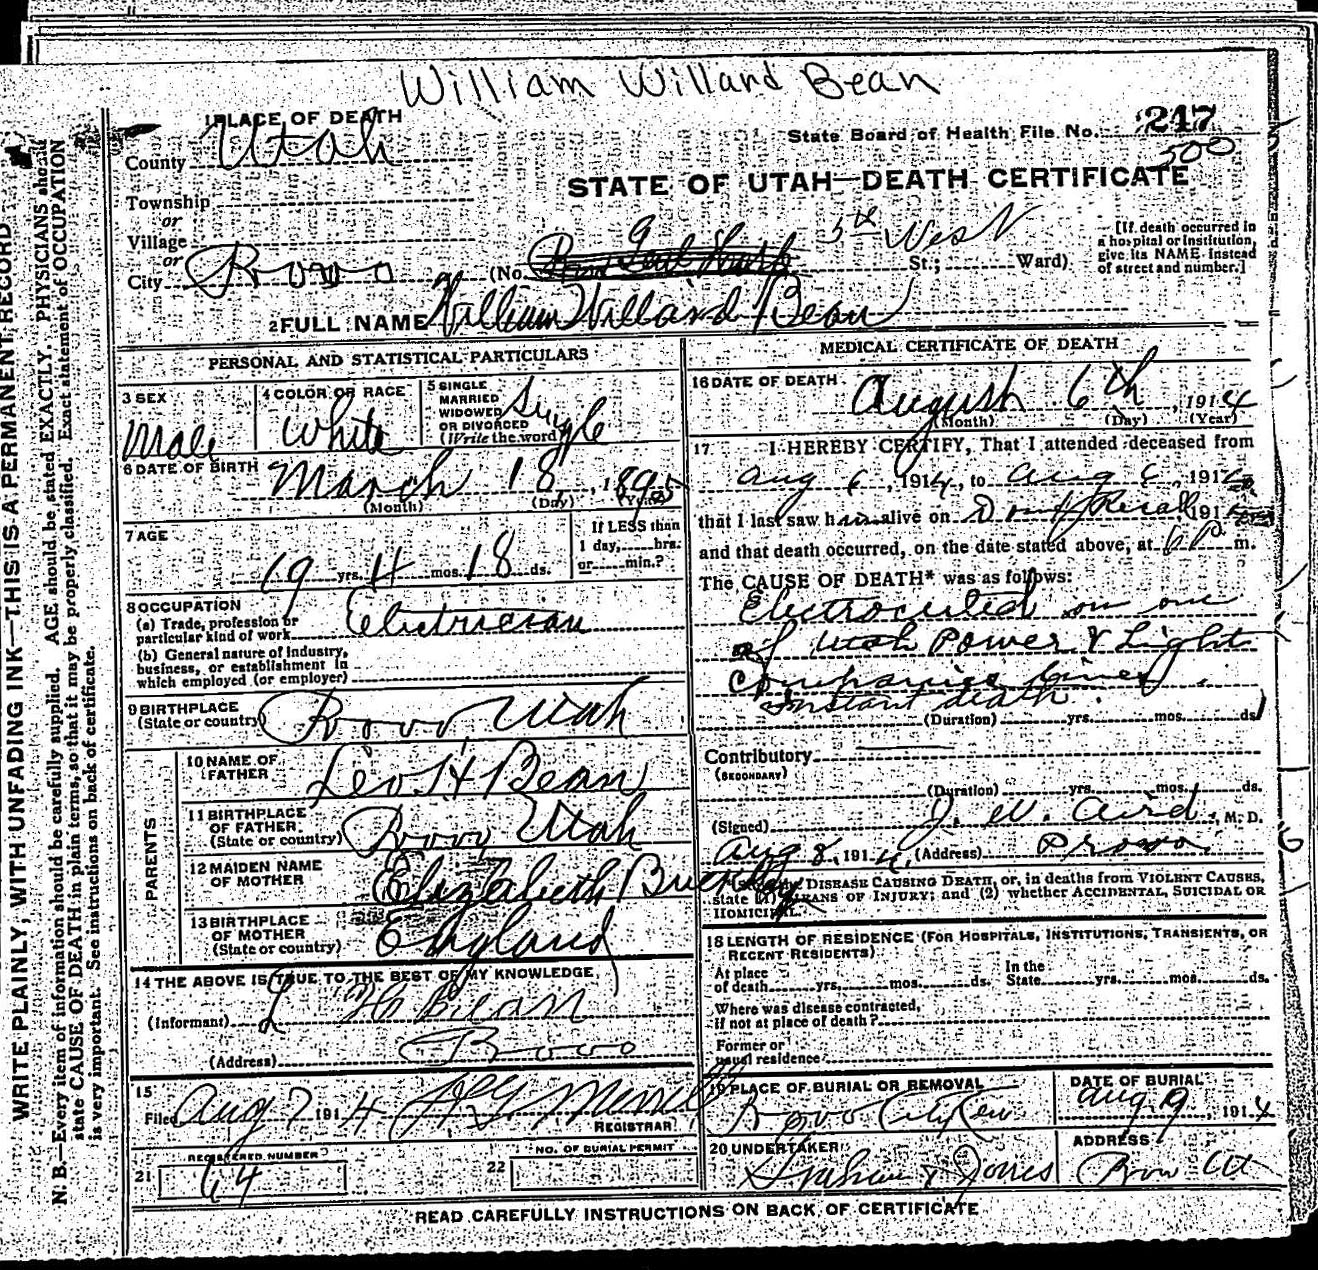 William Willard Bean
1 PLACE OF DEATH
County Utah
Township
or
Village
or
City Provo
State Board of Health File No. 217
500
STATE OF UTAH—DEATH CERTIFICATE
(No. 5th West St; Ward)
[If death occurred in
a hospital or institution,
give its NAME instead
of street and number.]
2 FULL NAME William Willard Bean
PERSONAL AND STATISTICAL PARTICULARS
3 SEX
Male
4 COLOR OR RACE
White
5 SINGLE
MARRIED
WIDOWED
OR DIVORCED
(Write the word)
Single
6 DATE OF BIRTH
March 18, 1895
(Month) (Day) (Year)
7 AGE
19 yrs. 4 mos. 18 ds.
If LESS than
1 day, hrs.
or min.?
8 OCCUPATION
(a) Trade, profession or
particular kind of work Electrician
(b) General nature of industry,
business, or establishment in
which employed (or employer)
9 BIRTHPLACE
(State or country) Provo Utah
PARENTS
10 NAME OF
FATHER Leo H Bean
11 BIRTHPLACE
OF FATHER
(State or country) Provo Utah
12 MAIDEN NAME
OF MOTHER Elizabeth
13 BIRTHPLACE
OF MOTHER
(State or country) England
14 THE ABOVE IS TRUE TO THE BEST OF MY KNOWLEDGE
(Informant) L H Bean
(Address) Provo
15
Filed Aug 7 1914
REGISTRAR
REGISTERED NUMBER
21 64
NO. OF BURIAL PERMIT
22
MEDICAL CERTIFICATE OF DEATH
16 DATE OF DEATH
August 6th, 1914
(Month) (Day) (Year)
17 I HEREBY CERTIFY, That I attended deceased from
Aug 6, 1914, to Aug 6, 191
that I last saw him alive on Dont Recall 191
and that death occurred, on the date stated above, at 6 P m.
The CAUSE OF DEATH* was as follows:
Electrocuted on one
of Utah Power & Light
Companies lines.
Instant death.
(Duration) yrs. mos. ds.
Contributory
(SECONDARY)
(Duration) yrs. mos. ds.
(Signed) J. W. Aird, M. D.
Aug 8, 1914, (Address) Provo.
DISEASE CAUSING DEATH, or, in deaths from VIOLENT CAUSES,
state (1) MEANS OF INJURY; and (2) whether ACCIDENTAL, SUICIDAL OR
HOMICIDAL.
18 LENGTH OF RESIDENCE (FOR HOSPITALS, INSTITUTIONS, TRANSIENTS, OR
RECENT RESIDENTS)
At place
of death yrs. mos. ds.
In the
State yrs. mos. ds.
Where was disease contracted,
if not at place of death?
Former or
usual residence
19 PLACE OF BURIAL OR REMOVAL
Provo City Cem
DATE OF BURIAL
Aug. 9, 1914
20 UNDERTAKER
Graham & Jones
ADDRESS
Provo Ut
READ CAREFULLY INSTRUCTIONS ON BACK OF CERTIFICATE
WRITE PLAINLY, WITH UNFADING INK—THIS IS A PERMANENT RECORD
N. B.—Every item of information should be carefully supplied. AGE should be stated EXACTLY. PHYSICIANS should
state CAUSE OF DEATH in plain terms, so that it may be properly classified. Exact statement of OCCUPATION
is very important. See instructions on back of certificate.